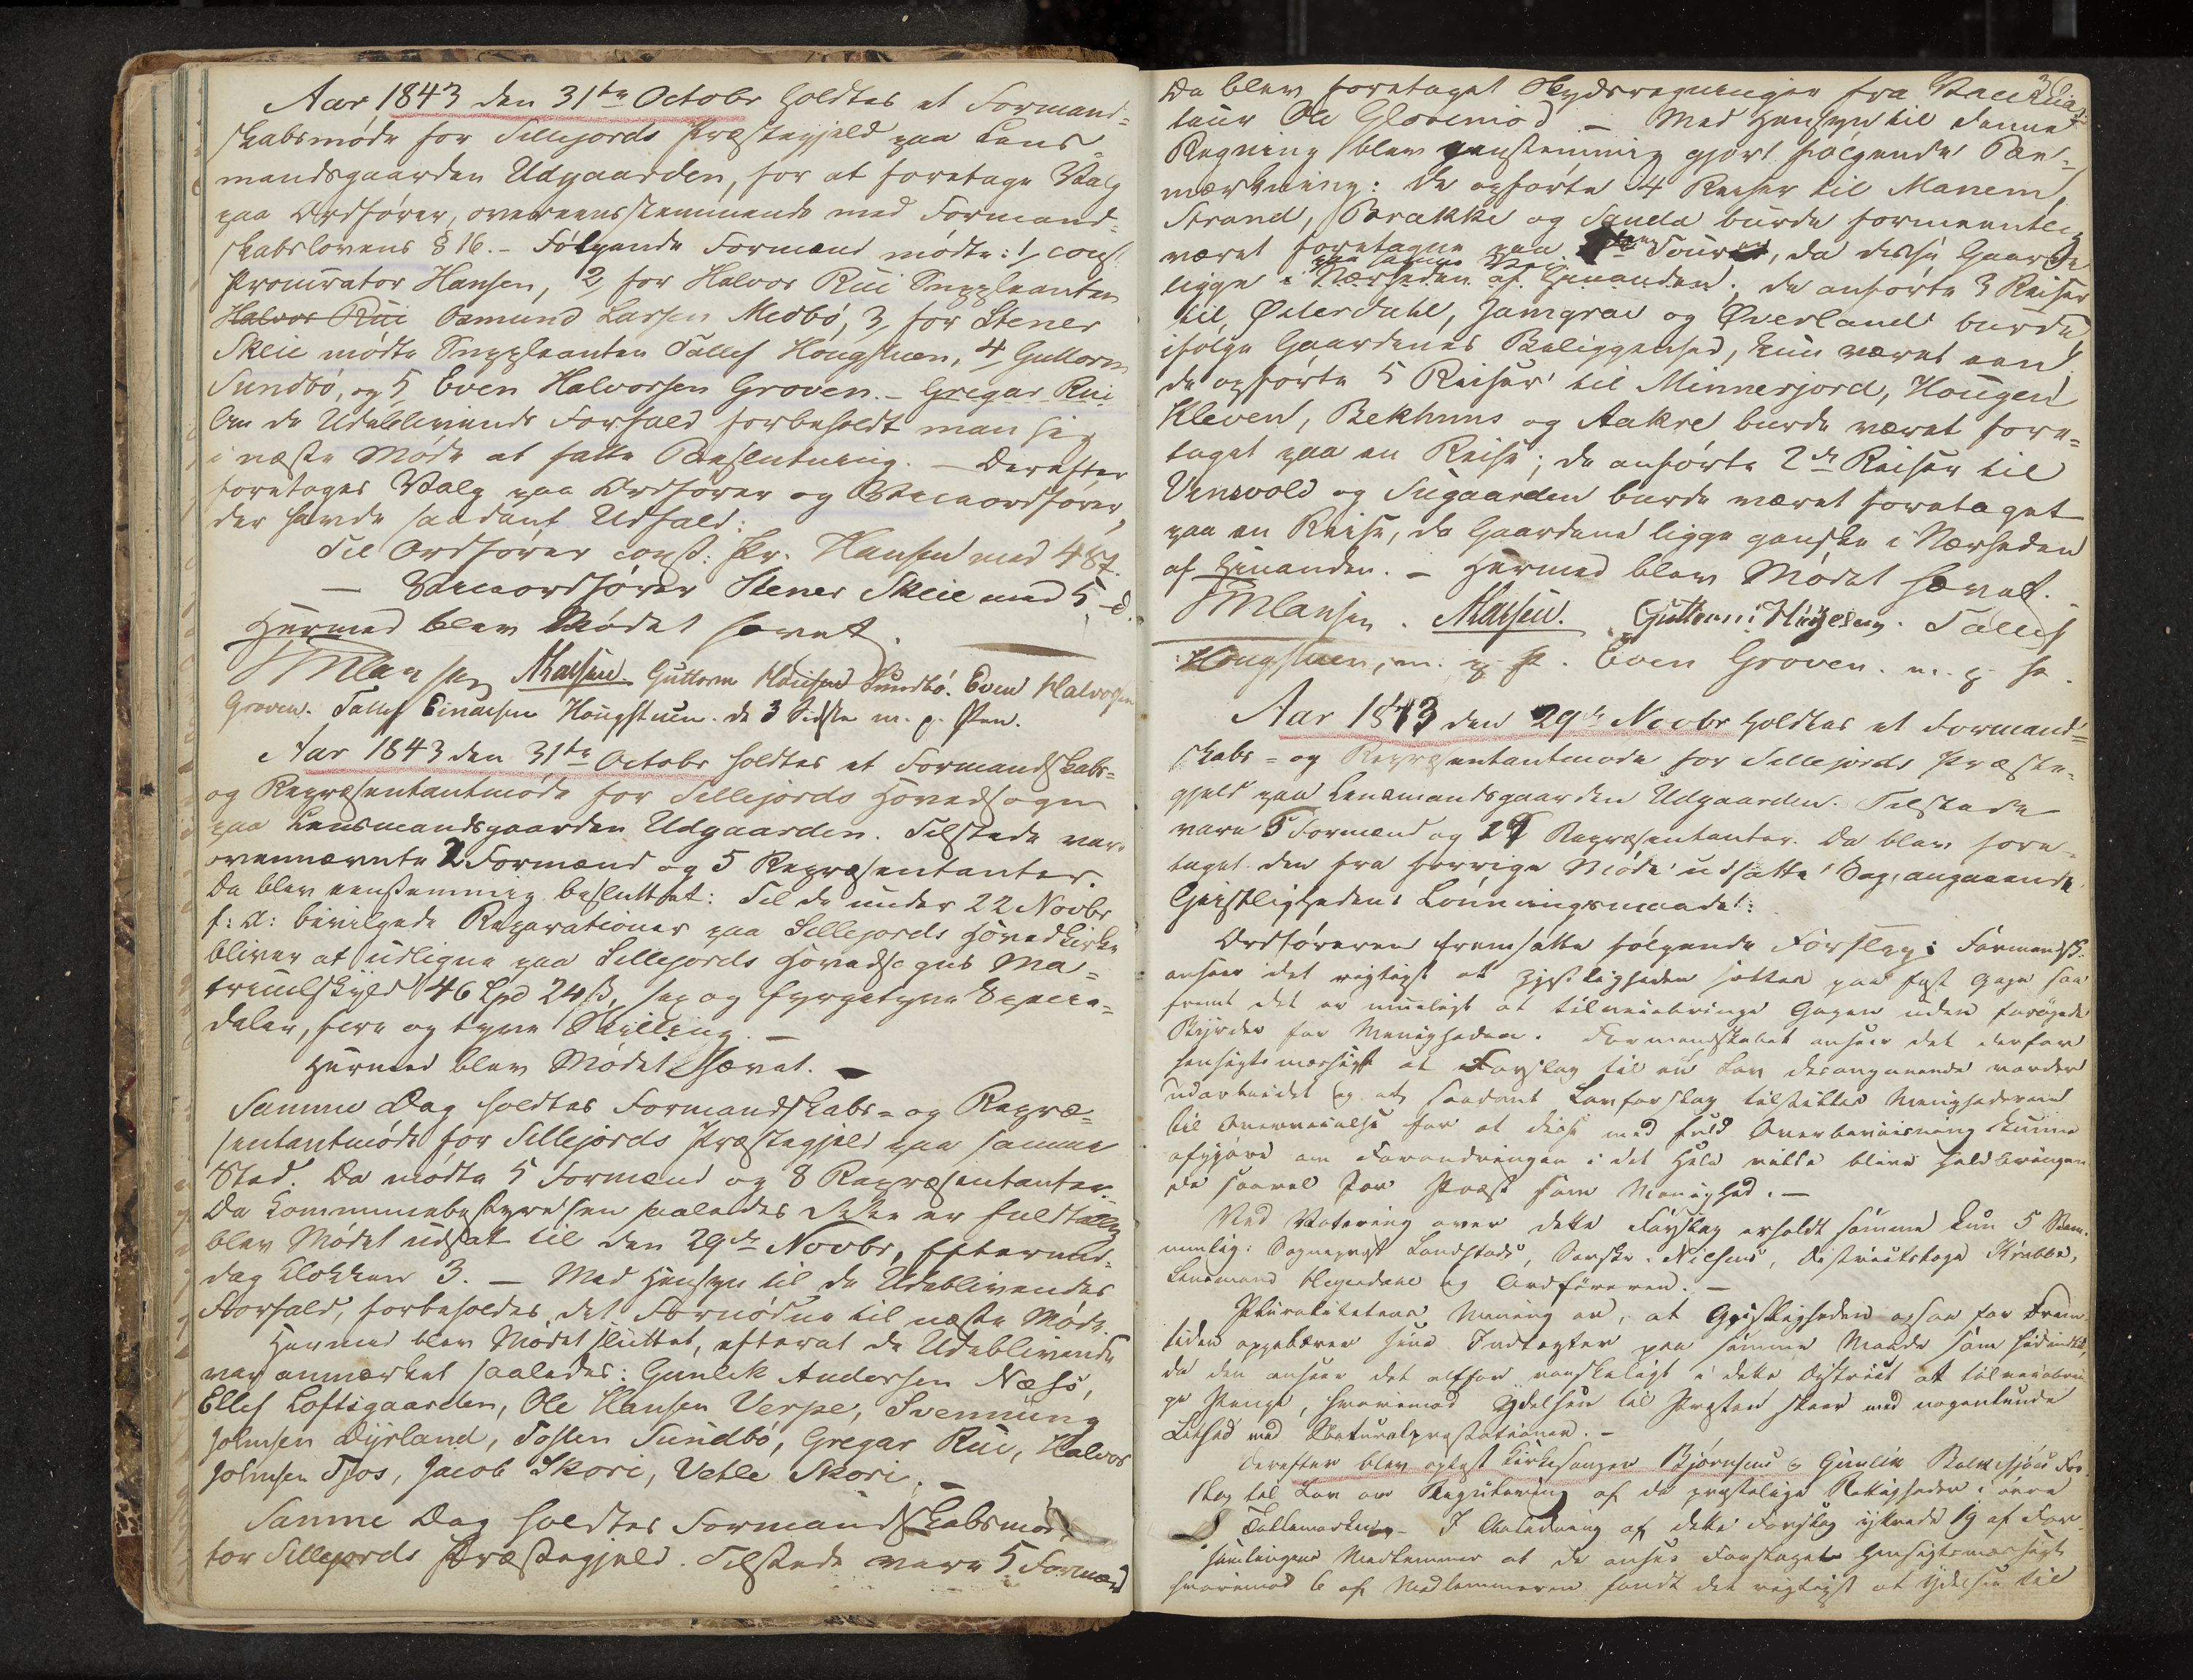 Aar 1843 den 31te Octobr holdtes et Formand=
skabsmøde for Sillejords Præstegjeld paa Lens-
mandsgaarden Udgaarden, for at foretage Valg
paa Ordfører, overeensstemmende med Formand-
skabslovens § 16. - Følgende Formænd mødte: 1, const
Procurator Hansen, 2, for Halvor Rui Suppleanten
Halvor Rui Osmund Larsen Medbø, 3, for Stener
Skeie mødte Suppleanten Tallef Hougstuen, 4, Guttorm
Sundbø, og 5, Even Halvorsen Groven. - Gregar Rui
Om de Udeblivende Forfald forbeholdt man sig
i næste Møde at fatte Beslutning. - Derefter
foretoges Valg paa Ordfører og Viceordfører,
der havde saadant Udfald:
Til Ordfører const: Pr. Hansen med 4 St.
— Viceordfører Stener Skeie med 5 -d.
Hermed blev Mødet hævet.
MHansen Guttorm Sundbø. Even Halvorsen
Groven. Tallef Einarsen Hougstuen. de 3 Sidste m. p. Pen.
Aar 1843 den 31te Octobr holdtes et Formandskabs=
og Repræsentantmøde for Sillejords Hovedsogn
paa Lensmandsgaarden Udgaarden. Tilstede vare
ovennævnte 2 Formænd og 5 Repræsentanter.
Da blev eenstemmig besluttet: Til de under 22 Novbr
f: A: bevilgede Reparationer paa Sillejords Hovedkirke
bliver at udligne paa Sillejords Hovedsogns Ma=
trikulskyld 46 Spd 24 ß, sex og fyrgetyve Specie=
daler, fire og tyve Skilling. -
Hermed blev Mødet hævet. -
Samme Dag holdtes Formandskabs= og Repræ=
sentantmøde for Sillejords Præstegjeld paa samme
Sted. Da mødte 5 Formænd og 8 Repræsentanter.
Da Kommunebestyrelsen saaledes ikke er fuldtallig
blev Mødet udsat til den 29de Novbr, Eftermid-
dag Klokken 3. — Med Hensyn til de Udeblivendes
Forfald, forbeholdes det Fornødne til næste Møde.
Hermed blev Mødet sluttet, efterat de Udeblivende
var anmærket saaledes: Gunlek Andersen Næsø,
Ellef Loftsgaarden, Ole Hansen Verpe, Svennung
Johnsen Dyrland, Tosten Sundbø, Gregar Rui, Halvor
Johnsen Tjos, Jacob Skori, Vetle Skori. —
Samme Dag holdtes Formandskabsmøde
for Sillejords Præstegjeld. Tilstede vare 5 Formænd
Da blev foretaget Skydsregningen fra
Ole Glosemod. — Med Hensyn til denne
Regning blev eenstemmig gjort følgende Be-
mærkning: De opførte 4 Reiser til Manem,
Strand, Brække og Sanda burde formeentlig
været foretagne paa Tour, da disse Gaarde
ligge i Nærheden af hinanden; de anførte 3 Reiser
til Øderdahl, Jamgrav og Øverland burde
ifølge Gaardenes Beliggenhed, kun været een
de opførte 5 Reiser til Minnerjord, Hougen
Kleven, Bekhuus og Aakre burde været fore=
taget paa en Reise; de anførte 2de Reiser til
Vinsvold og Sugaarden burde været foretaget
paa en Reise, da Gaardene ligge ganske i Nærheden
af hinanden. — Hermed blev Mødet hævet.
MHansen. Guttorm. Tallef
Hougstuen, m. p. P. Even Groven. m. p. P.
Aar 1843 den 29de Novbr holdtes et Formand=
skabs= og Repræsentantmøde for Sillejords Præste-
gjeld paa Lensmandsgaarden Udgaarden. Tilstede
vare 5 Formænd og Repræsentanter. Da blev fore-
taget den fra forrige Møde udsatte Sag, angaaende
Geistlighedens Lønningsmaade:
Ordføreren fremsatte følgende Forslag: Formandsk.
anseer det rigtigst at Geistligheden sættes paa fast Gage saa
fremt det er mueligt at tilveiebringe Gagen uden forøgede
Byrder for Menigheden. Formandskabet anseer det derfor
hensigtsmæssigt at Forslag til en Lov desangaaende vorder
udarbeidet og at saadant Lovforslag tilstilles Menighederne
til Overveielse for at disse med fuld Overbeviisning kunne
afgjøre om Forandringen i det Hele vilde blive heldbringen-
de saavel for Præst som Menighed. —
Ved Votering over dette Forslag erholdt samme kun 5 Stem.
nemlig: Sogneprest Landstads, Nielsens, Districtslæge Krabbe,
Lensmand og Ordføreren. —
Pluralitetens Mening er, at Geistligheden ogsaa for Frem-
tiden oppebærer sine Indtægter paa samme Maade som hidindtil,
da den anseer det altfor vanskeligt i dette District at tilveiebrin-
ge Penge, hvorimod Ydelsen til Præsten skeer med nogenlunde
Lethed med Naturalpræstationer. -
Derefter blev oplæst Kirkesanger Bjørnsens og Gunlik For-
slag til Lov om Regulering af de præstelige Rettigheder i øvre
Tellemarken. — I Anledning af dette Forslag yttrede 19 af For-
samlingens Medlemmer at de ansee Forslaget hensigtsmæssigt
hvorimod 6 af Medlemmerne fandt det rigtigst at Ydelsen til